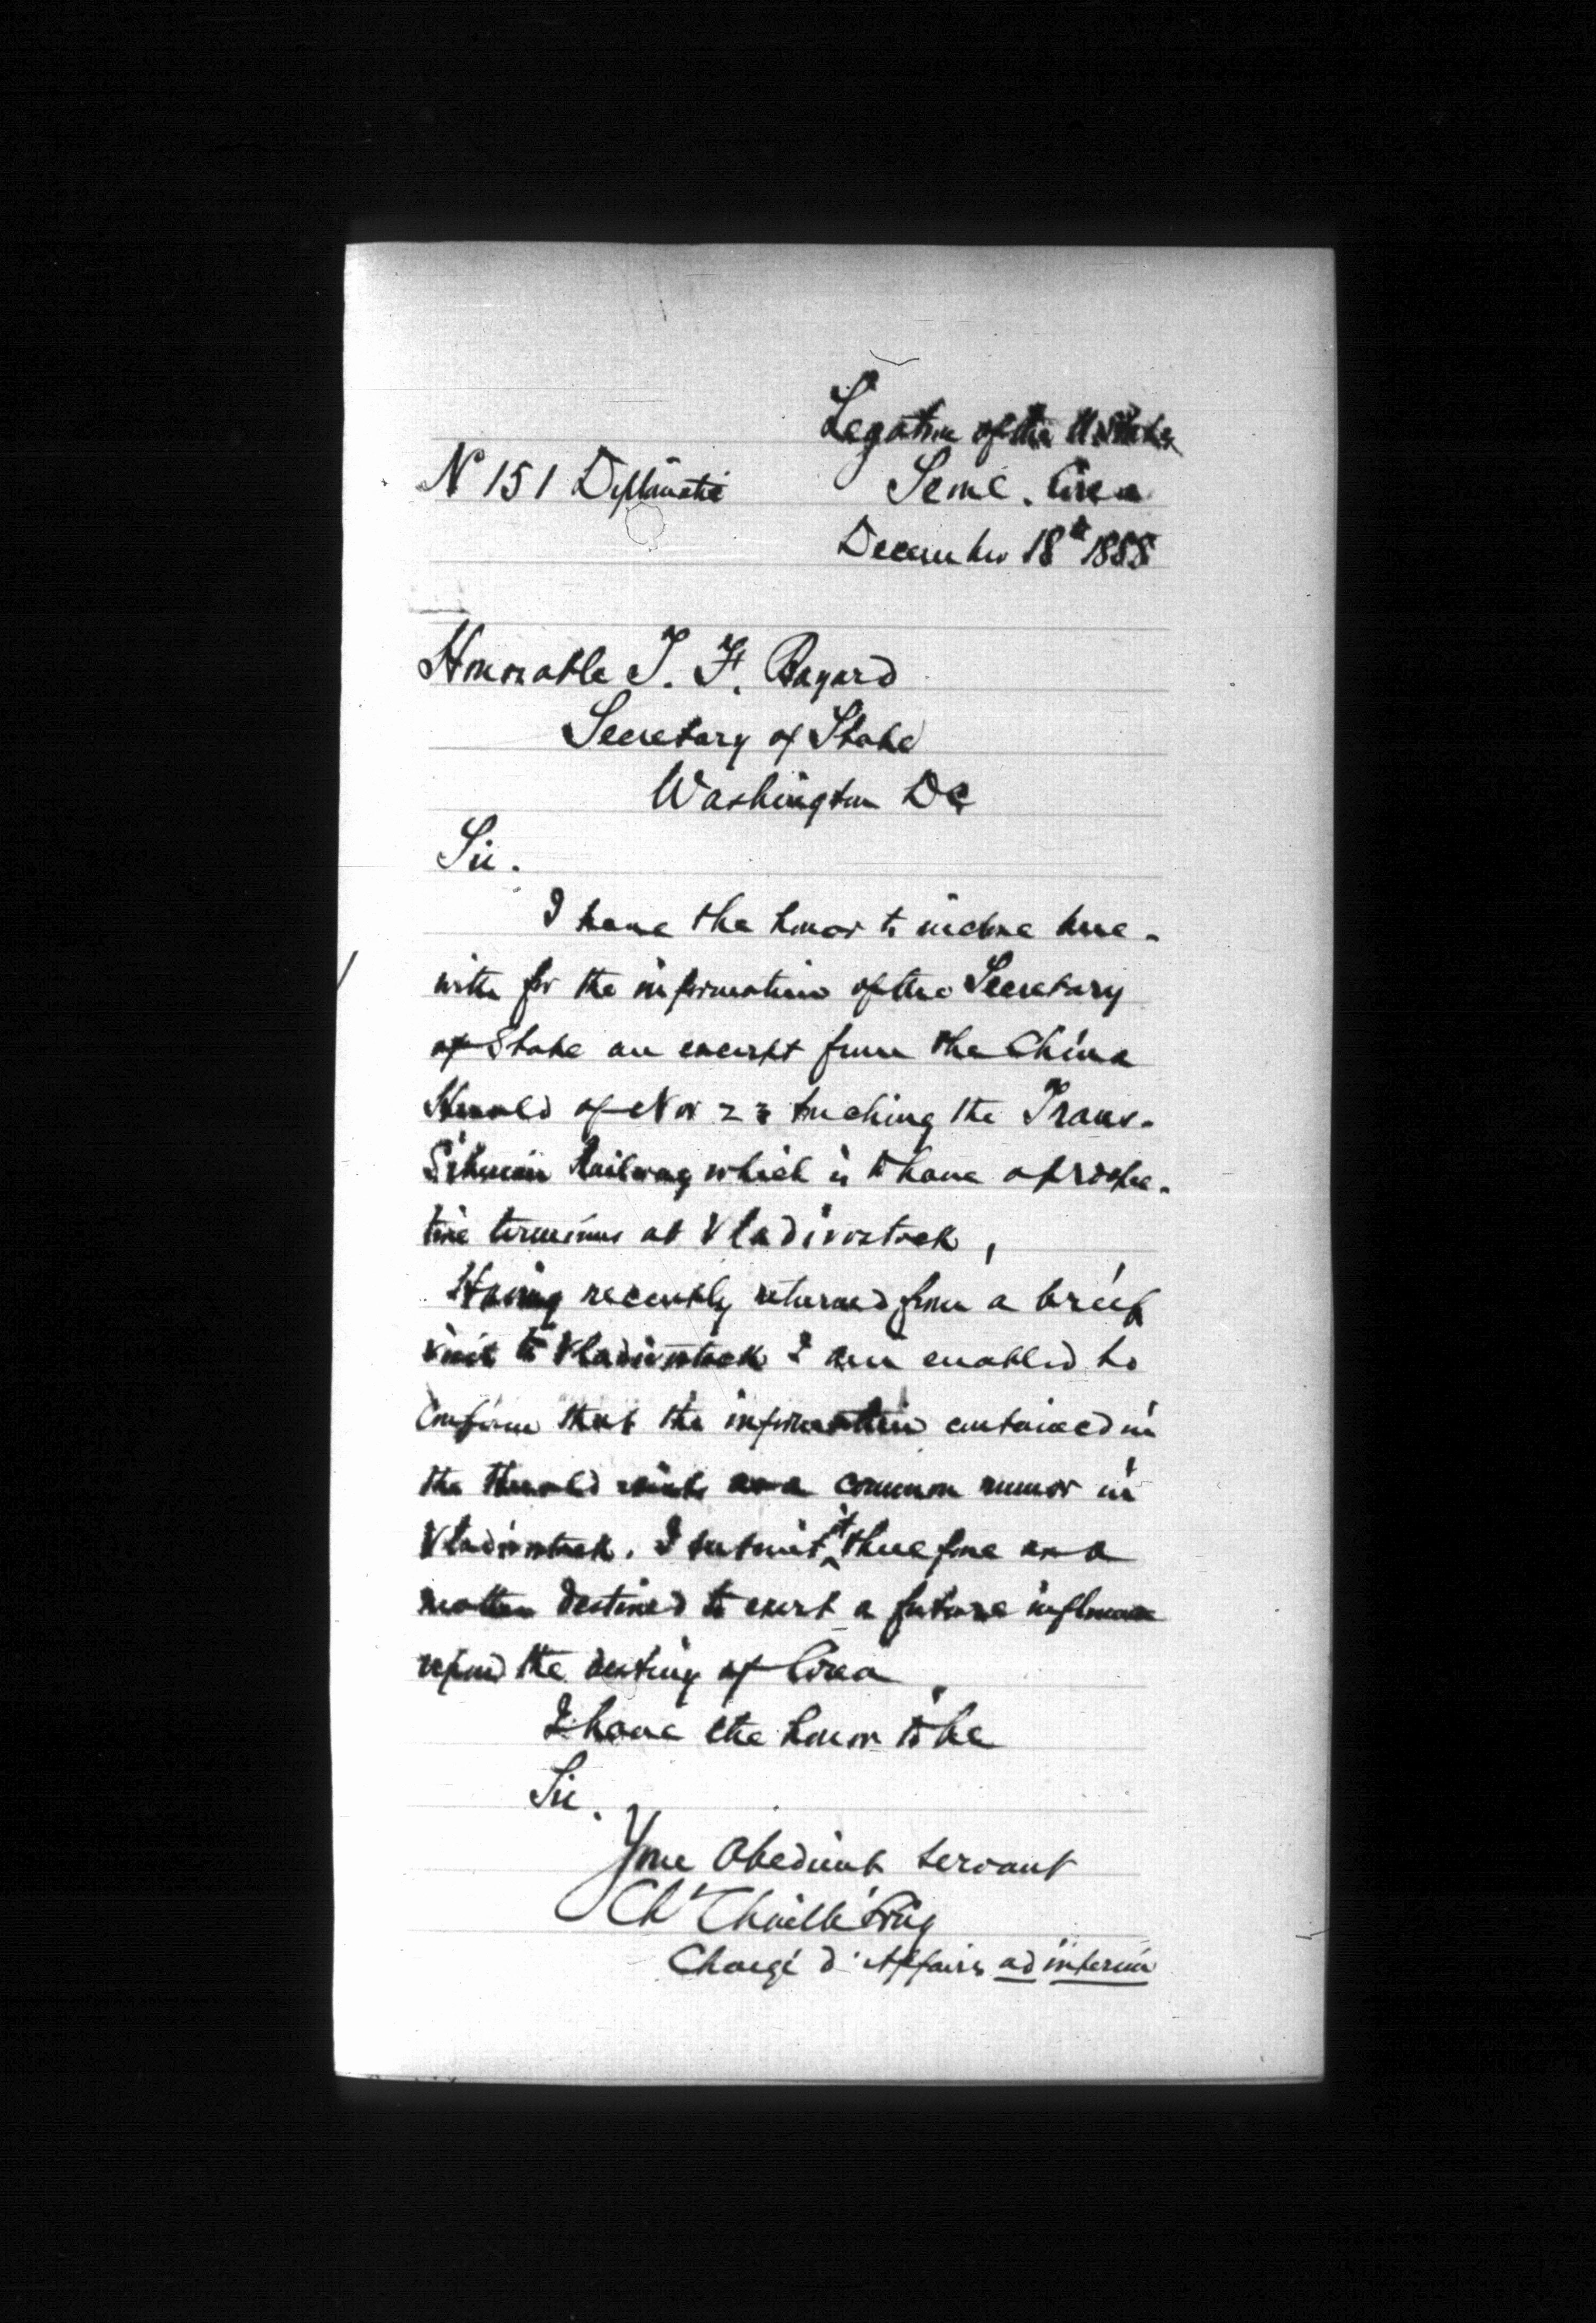 Legation of the U. States
No 151 Diplomatic
Seoul. Corea
December 18th 1888
Honorable T. F. Bayard
Secretary of State
Washington DC
Sir.
I have the honor to inclose here-
with for the information of the Secretary
of State an excerpt from the China
Herald of Nov 23 touching the Trans-
Siberian Railway which is to have a prospec-
tive terminus at Vladivostock,
Having recently returned from a brief
visit to Vladivostock I am enabled to
confirm that the information contained in
the Herald exists as a common rumor in
Vladivostock. I submit it therefore as a
matter destined to exert a future influence
upon the destiny of Corea
I have the honor to be
Sir.
Your Obedient Servant
Ch. Chaillé Long
Chargé d'Affaires ad interim